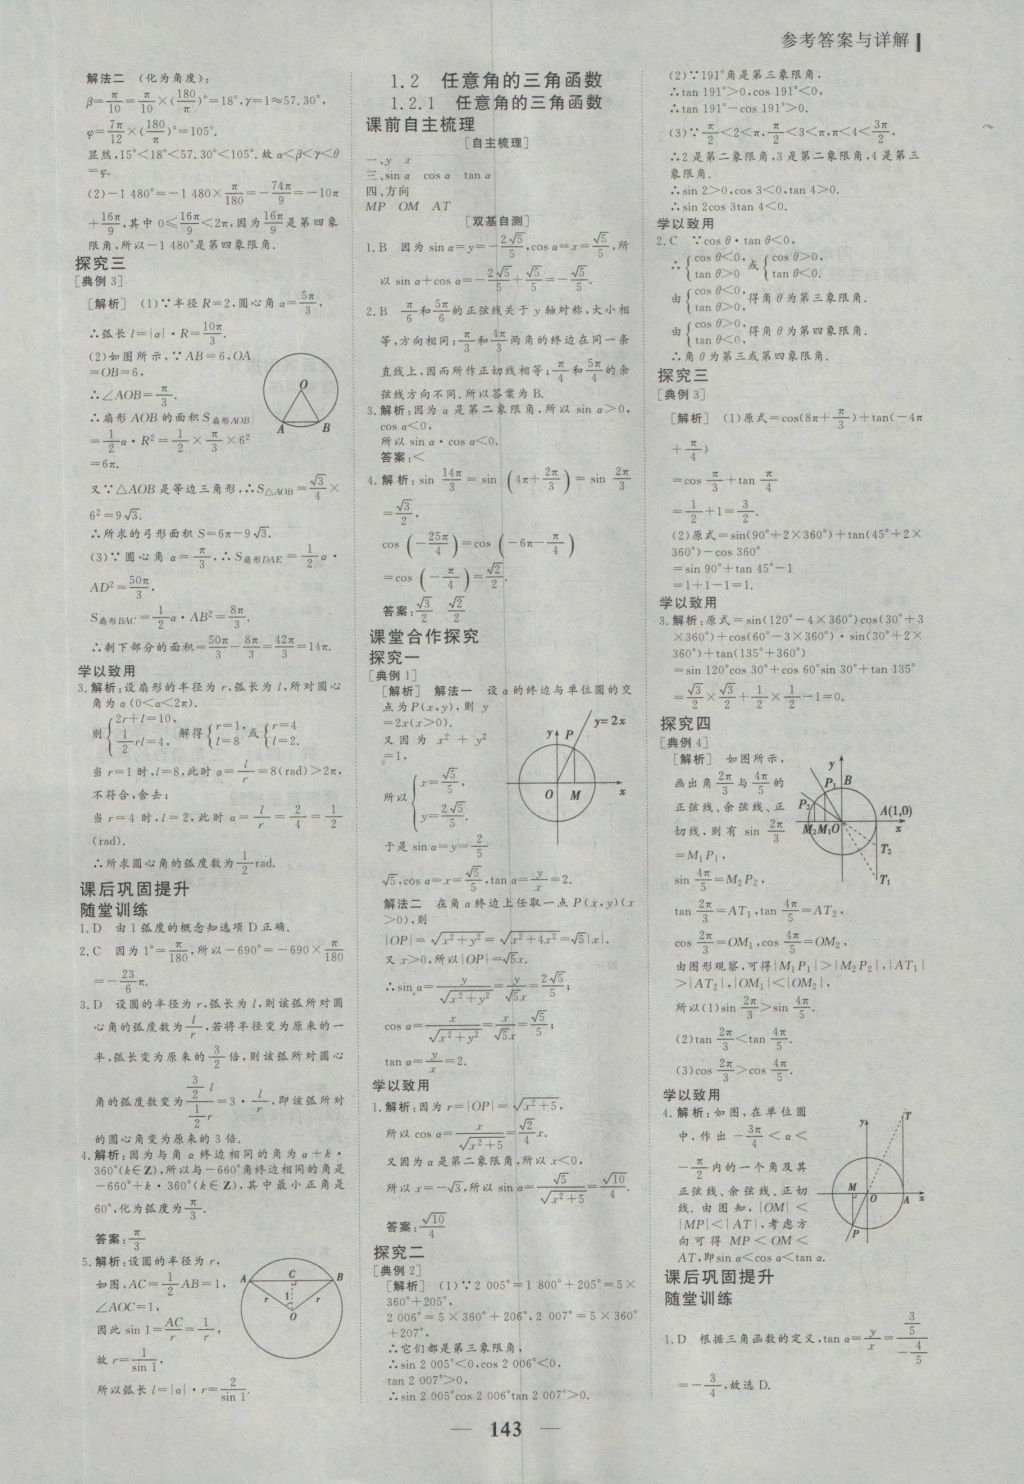 参考答案与详解
解法二 (化为角度):
β=π/10=π/10×(180/π)°=18°,γ=1≈57.30°,
φ=7π/12×(180/π)°=105°.
显然,15°<18°<57.30°<105°.故α<β<γ<θ
=φ.
(2)-1 480°=-1 480×π/180=-74π/9=-10π
+16π/9,其中 0≤16π/9<2π,因为16π/9是第四象
限角,所以-1 480°是第四象限角.
探究三
[典例 3]
[解析] (1)∵半径 R=2,圆心角 α=5π/3,
∴弧长 l=|α|·R=10π/3.
(2)如图所示,∵AB=6,OA
=OB=6,
∴∠AOB=π/3.
∴扇形 AOB 的面积 S扇形AOB
=1/2α·R²=1/2×π/3×6²
=6π.
又∵△AOB 是等边三角形,∴S△AOB=√3/4×
6²=9√3.
∴所求的弓形面积 S=6π-9√3.
(3)∵圆心角 α=π/3,∴S扇形DAE=1/2α·
AD²=50π/3,
S扇形BAC=1/2α·AB²=8π/3.
∴剩下部分的面积=50π/3-8π/3=42π/3=14π.
学以致用
3.解析:设扇形的半径为 r,弧长为 l,所对圆心
角为 α(0<α<2π).
则{2r+l=10, 1/2rl=4, 解得{r=1, l=8 或{r=4 l=2.
当 r=1 时,l=8,此时 α=l/r=8(rad)>2π,
不符合,舍去;
当 r=4 时,l=2,此时 α=l/r=2/4=1/2
(rad).
∴所求圆心角的弧度数为1/2rad.
课后巩固提升
随堂训练
1.D 由 1 弧度的概念知选项 D 正确.
2.C 因为 1°=π/180,所以-690°=-690×π/180
=-23/6π.
3.D 设圆的半径为 r,弧长为 l,则该弧所对圆
心角的弧度数为l/r,若将半径变为原来的一
半,弧长变为原来的3/2倍,则该弧所对圆心
角的弧度数变为(3/2 l)/(1/2 r)=3·l/r,即该弧所对
的圆心角变为原来的 3 倍.
4.解析:因为与角 α 终边相同的角为 α+k·
360°(k∈Z),所以与-660°角终边相同的角是
-660°+k·360°(k∈Z),其中最小正角是
60°,化为弧度为π/3.
答案:π/3
5.解析:设圆的半径为 r,
如图,AC=1/2AB=1,
∠AOC=1,
因此 sin 1=AC/r=1/r,
故 r=1/sin 1,
所以弧长 l=|α|·r=2/sin 1.
O
A B
A C B
r 1 r
O
1.2 任意角的三角函数
1.2.1 任意角的三角函数
课前自主梳理
[自主梳理]
一、y x
三、sin α cos α tan α
四、方向
MP OM AT
[双基自测]
1.B 因为 sin α=y=-2√5/5,cos α=x=√5/5,所
以 sin α+cos α=-2√5/5+√5/5=-√5/5.
2.B π/6和5π/6的正弦线关于 y 轴对称,大小相
等,方向相同;π/3和4π/3两角的终边在同一条
直线上,因而所作正切线相等;π/4和5π/4的余
弦线方向不同.所以答案为 B.
3.解析:因为 α 是第二象限角,所以 sin α>0,
cos α<0,
所以 sin α·cos α<0.
答案:<
4.解析:sin 14π/3=sin (4π+2π/3)=sin 2π/3
=√3/2,
cos(-25π/4)=cos(-6π-π/4)
=cos(-π/4)=√2/2.
答案:√3/2 √2/2
课堂合作探究
探究一
[典例 1]
[解析] 解法一 设 α 的终边与单位圆的交
点为 P(x,y),则 y
=2x(x>0).
又因为 x²+y²
=1,
所以{x=√5/5, y=2√5/5.
于是 sin α=y=2/5
√5,cos α=x=√5/5,tan α=y/x=2.
解法二 在角 α 终边上任取一点 P(x,y)(x
>0),则
|OP|=√(x²+y²)=√(x²+4x²)=√5|x|,
又 x>0,所以|OP|=√5x.
∴sin α=y/√(x²+y²)=y/√5x=2√5/5;
cos α=x/√(x²+y²)=x/√5x=√5/5;
tan α=y/x=2.
学以致用
1.解析:因为 r=|OP|=√(x²+5),
所以 cos α=x/√(x²+5)=√2/4x.
又因为 α 是第二象限角,所以 x<0,
所以 x=-√3,所以 sin α=√5/√(x²+5)=√10/4.
答案:√10/4
探究二
[典例 2]
[解析] (1)∵2 005°=1 800°+205°=5×
360°+205°,
2 006°=5×360°+206°,2 007°=5×360°
+207°,
∴它们都是第三象限角,
∴sin 2 005°<0,cos 2 006°<0,
tan 2 007°>0,
∴sin 2 005°cos 2 006°tan 2 007°>0.
y P y=2x
O M x
(2)∵191°角是第三象限角,
∴tan 191°>0,cos 191°<0,
∴tan 191°-cos 191°>0.
(3)∵π/2<2<π,π/2<3<π,π<4<3π/2,
∴2 是第二象限角,3 是第二象限角,4 是第三
象限角.
∴sin 2>0,cos 3<0,tan 4>0.
∴sin 2cos 3tan 4<0.
学以致用
2.C ∵cos θ·tan θ<0,
∴{cos θ<0, tan θ>0 或{cos θ>0, tan θ<0.
由{cos θ<0, tan θ>0,得角 θ 为第三象限角.
由{cos θ>0, tan θ<0,得角 θ 为第四象限角.
∴角 θ 为第三或第四象限角.
探究三
[典例 3]
[解析] (1)原式=cos(8π+π/3)+tan(-4π
+π/4)
=cos π/3+tan π/4
=1/2+1=3/2.
(2)原式=sin(90°+2×360°)+tan(45°+2×
360°)-cos 360°
=sin 90°+tan 45°-1
=1+1-1=1.
学以致用
3.解析:原式=sin(120°-4×360°)cos(30°+3
×360°)+cos(60°-3×360°)·sin(30°+2×
360°)+tan(135°+360°)
=sin 120°cos 30°+cos 60°sin 30°+tan 135°
=√3/2×√3/2+1/2×1/2-1=0.
探究四
[典例 4]
[解析] 如图所示,
画出角2π/3与4π/5的
正弦线、余弦线、正
切线,则有 sin 2π/3
=M₁P₁,
sin 4π/5=M₂P₂,
tan 2π/3=AT₁,tan 4π/5=AT₂,
cos 2π/3=OM₁,cos 4π/5=OM₂,
由图形观察,可得|M₁P₁|>|M₂P₂|,|AT₁|
>|AT₂|,|OM₁|<|OM₂|,
所以(1)sin 2π/3>sin 4π/5.
(2)tan 2π/3<tan 4π/5.
(3)cos 2π/3>cos 4π/5.
学以致用
4.解析:如图,在单位圆
中,作出-3π/4<α<
-π/2内的一个角及其
正弦线、余弦线、正切
线.由图知,|OM|<
|MP|<|AT|,考虑方
向可得 MP<OM<
AT,即sin α<cos α<tan α.
课后巩固提升
随堂训练
1.D 根据三角函数的定义,tan α=y/x=(3/5)/(-4/5)
=-3/4,故选 D.
y
P₁ B
P₂ A(1,0)
M₂M₁O x
T₂
T₁
y T
M O A x
P
143